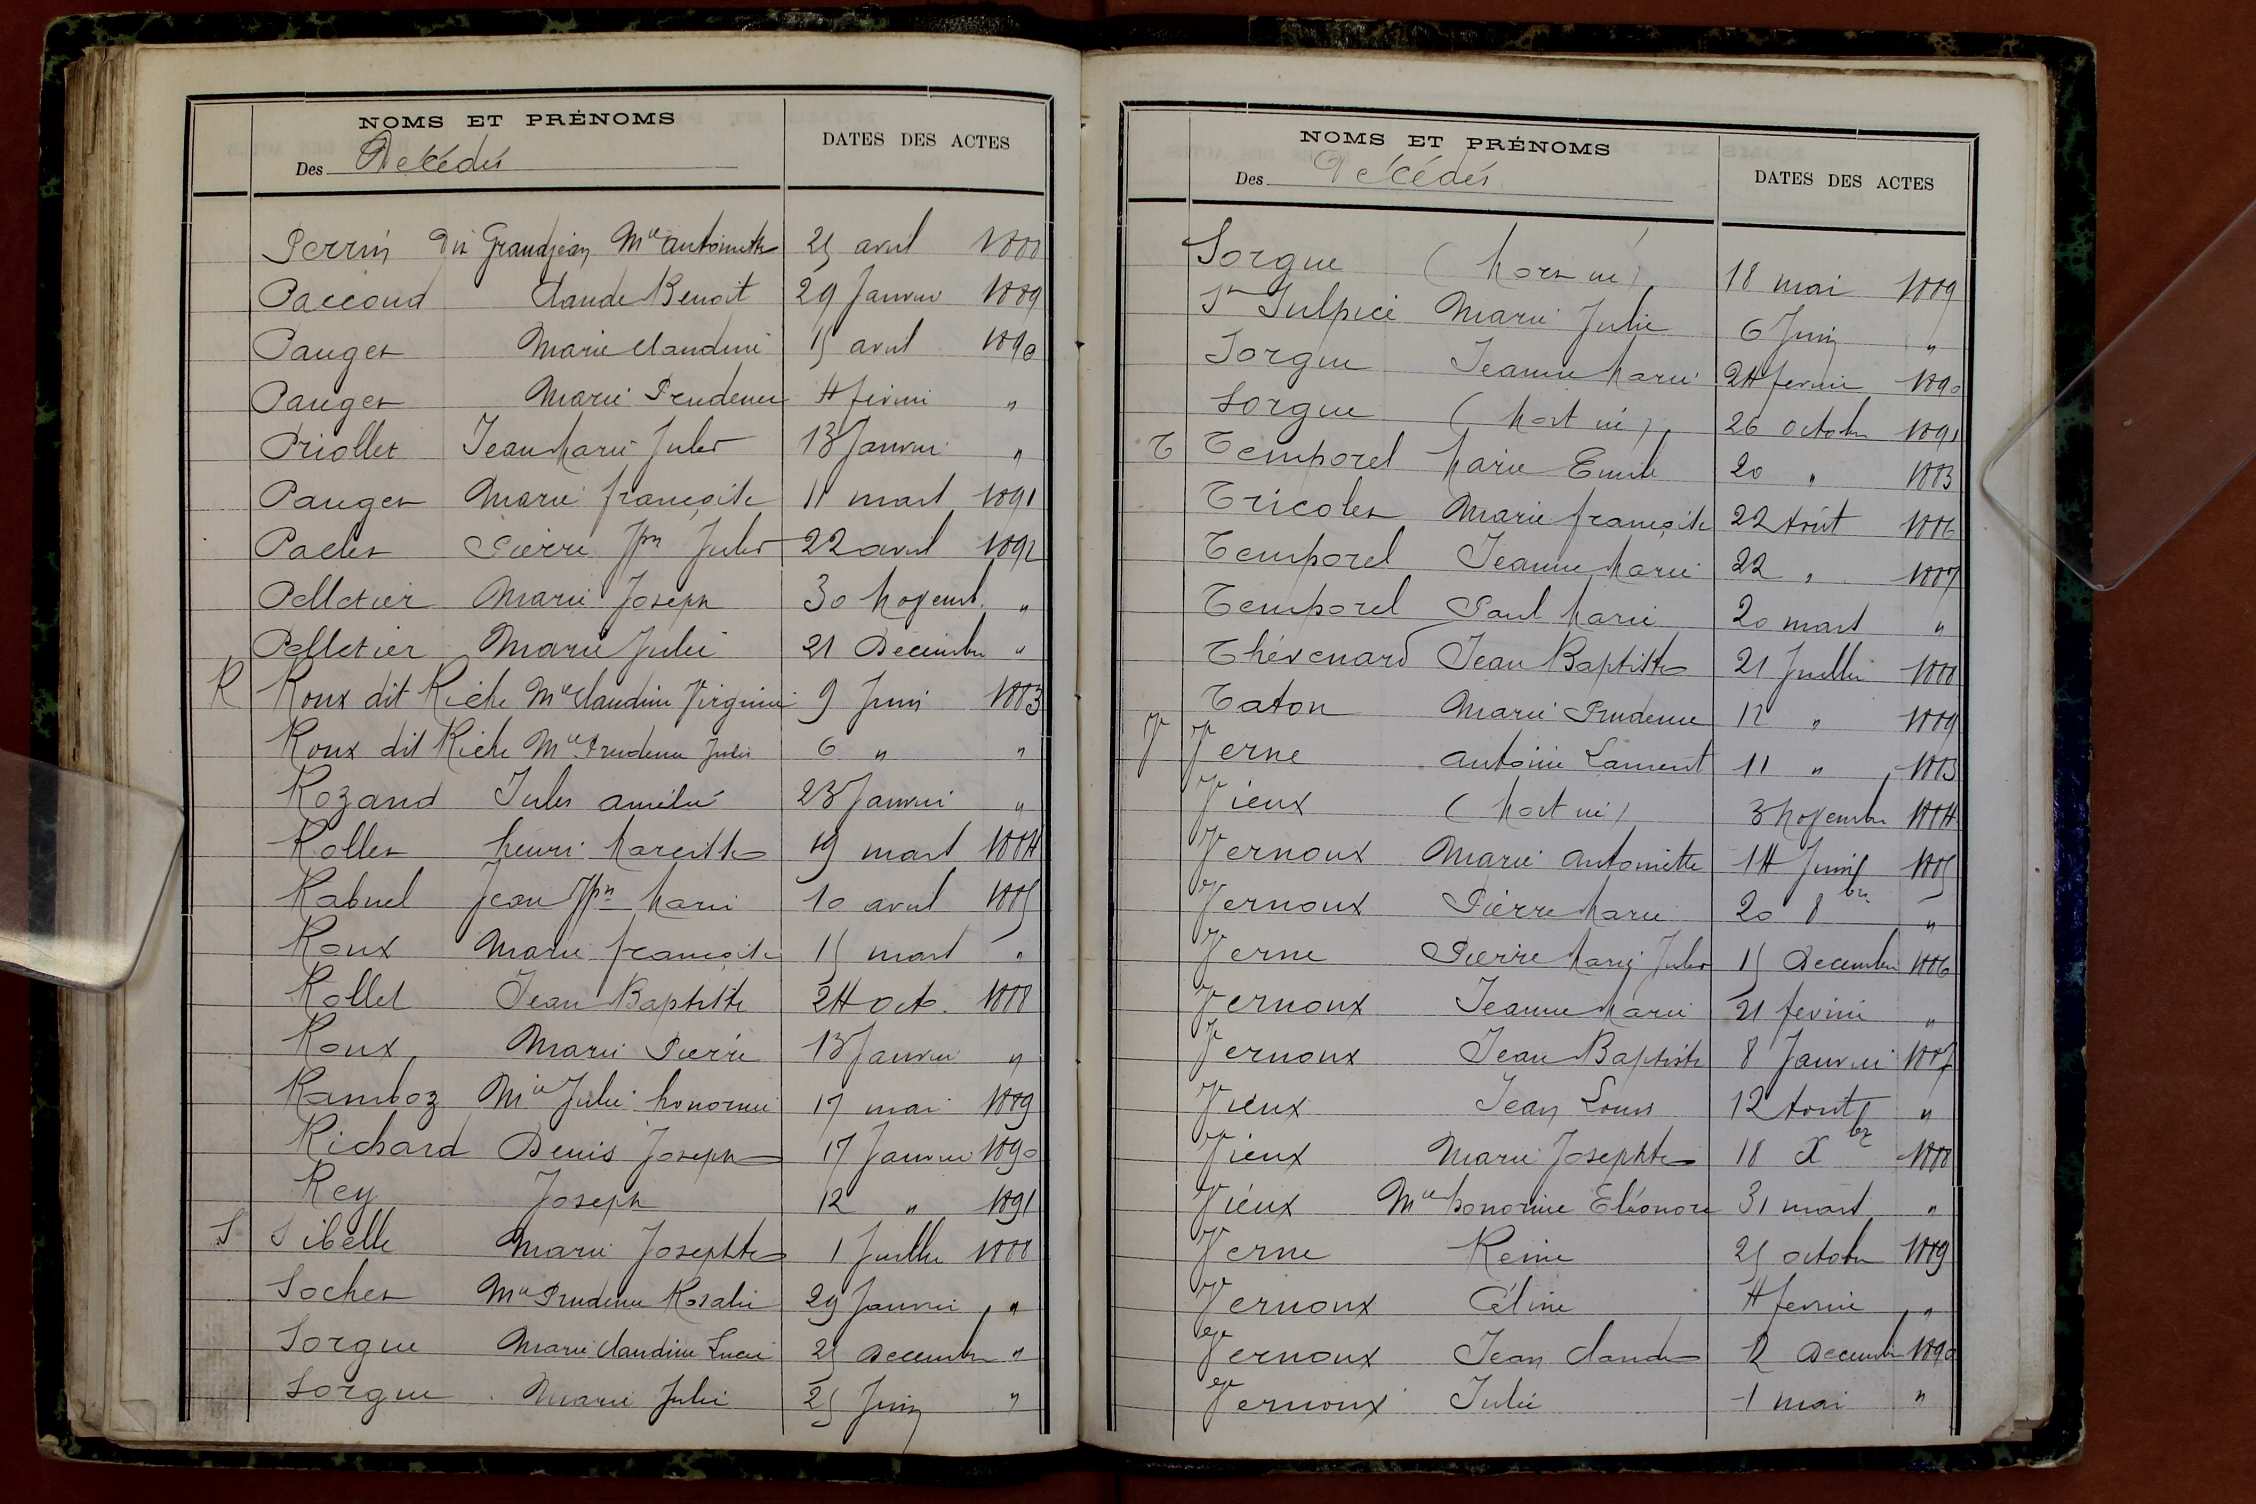 NOMS ET PRÉNOMS
Des Décédés
DATES DES ACTES
Perrin dit Grandjean Mie antoinette 25 avril 1888
Paccoud Claude Benoit 29 Janvier 1889
Pauget Marie Claudine 15 avril 1890
Pauget Marie Prudence 4 février "
Priollet Jean Marie Jules 13 Janvier "
Pauget Marie françoise 11 mars 1891
Paclet Pierre Jph Jules 22 avril 1892
Pelletier Marie Joseph 30 Novemb. "
Pelletier Marie Julie 21 Décembre "
R Roux dit Riche Mie Claudine Virginie 9 Juin 1883
Roux dit Riche Mie Prudence Julie 6 " "
Rozand Jules amélie 23 Janvier "
Rollet henri Narcisse 19 mars 1884
Rabuel Jean Jph Marie 10 avril 1885
Roux Marie françoise 15 mars "
Rollet Jean Baptiste 24 Oct. 1888
Roux Marie Pierre 13 Janvier "
Ramboz Mie Julie honorine 17 mai 1889
Richard Denis Joseph 17 Janvier 1890
Rey Joseph 12 " 1891
S Sibelle Marie Josephte 1 Juillet 1888
Sochet Mie Prudence Rosalie 29 Janvier "
Sorgue Marie Claudine Lucie 25 Décembre "
Sorgue Marie Julie 25 Juin "
NOMS ET PRÉNOMS
Des Décédés
DATES DES ACTES
Sorgue (Mort né) 18 mai 1889
St Sulpice Marie Julie 6 Juin "
Sorgue Jeanne Marie 24 fevrier 1890
Sorgue (Mort né) 26 octobre 1891
T Temporel Marie Emile 20 " 1883
Tricolet Marie françoise 22 Août 1886
Temporel Jeanne Marie 22 " 1887
Temporel Paul Marie 20 mars "
Thévenard Jean Baptiste 21 Juillet 1888
Taton Marie Prudence 12 " 1889
V Verne Antoine Laurent 11 " 1883
Vieux (Mort né) 3 Novembre 1884
Vernoux Marie Antoinette 14 Juin 1885
Vernoux Pierre Marie 20 8bre "
Verne Pierre Marie Jules 15 Decembre 1886
Vernoux Jeanne Marie 21 fevrier "
Vernoux Jean Baptiste 8 Janvier 1887
Vieux Jean Louis 12 Aout "
Vieux Marie Josephte 18 Xbre 1888
Vieux Mie honorine Eléonore 31 mars "
Verne Reine 25 octobre 1889
Vernoux Céline 4 fevrier "
Vernoux Jean Claude 12 Decembre 1890
Vernoux Julie 1 mai "